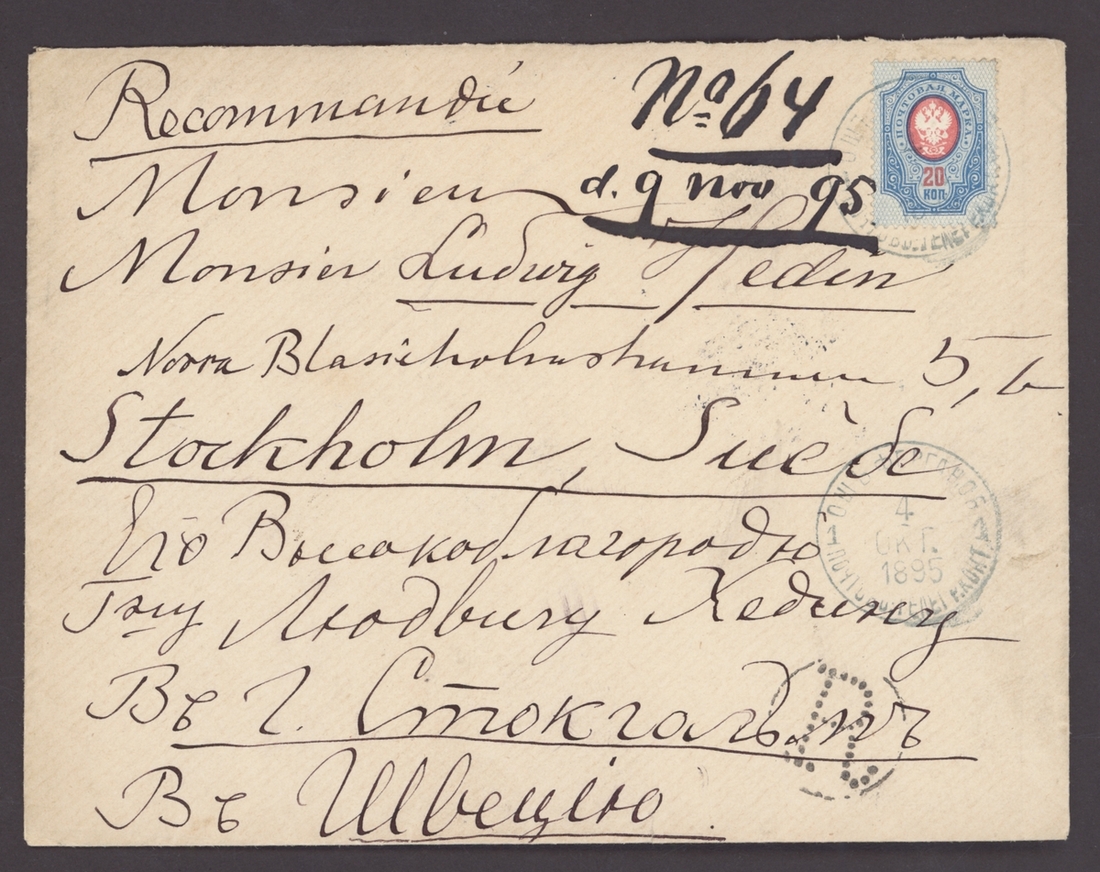 Recommandée
No 64
ПОЧТОВАЯ МАРКА
20
КОП.
Monsieur
d. 9 nov 95
Monsieur Ludwig Hedin
Norra Blasieholmshamnen 5, b
Stockholm, Suède
4
ОКТ.
1895
Его Высокоблагородiю
Гну Людвигу Хедину
Въ г. Стокгольмъ
Въ Швецiю
R